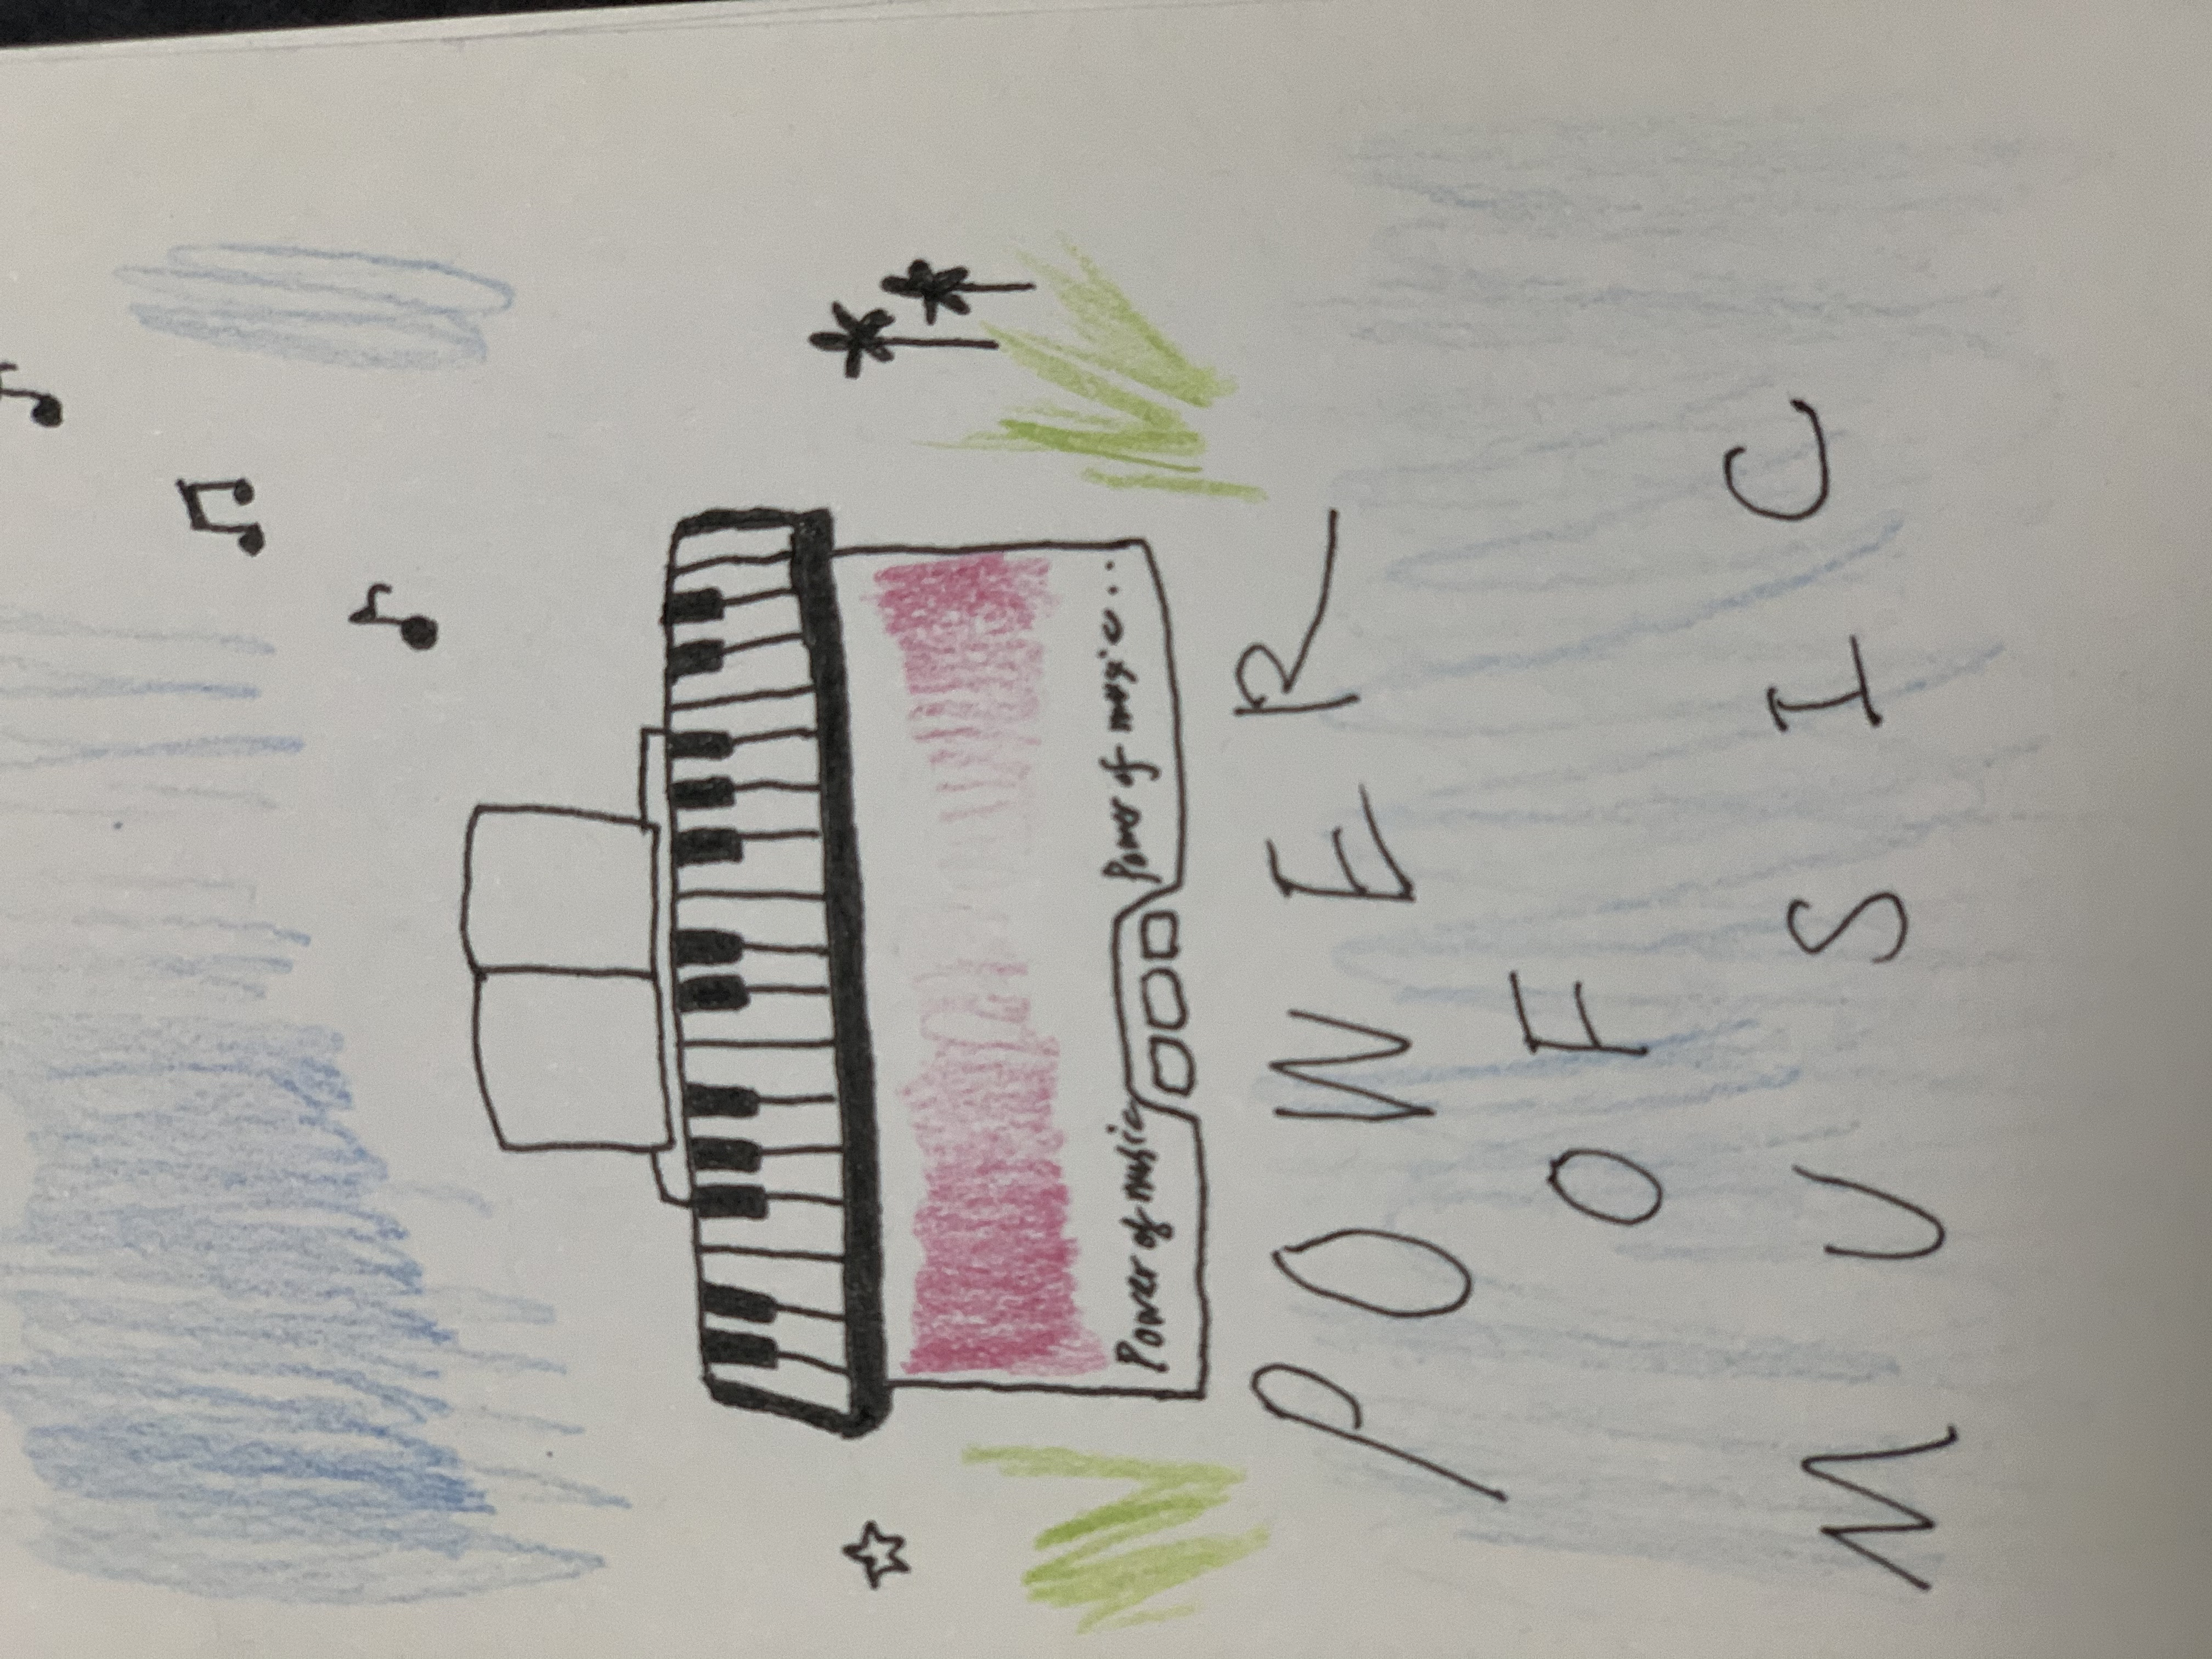 Power of music Power of music..
POWER
OF
MUSIC